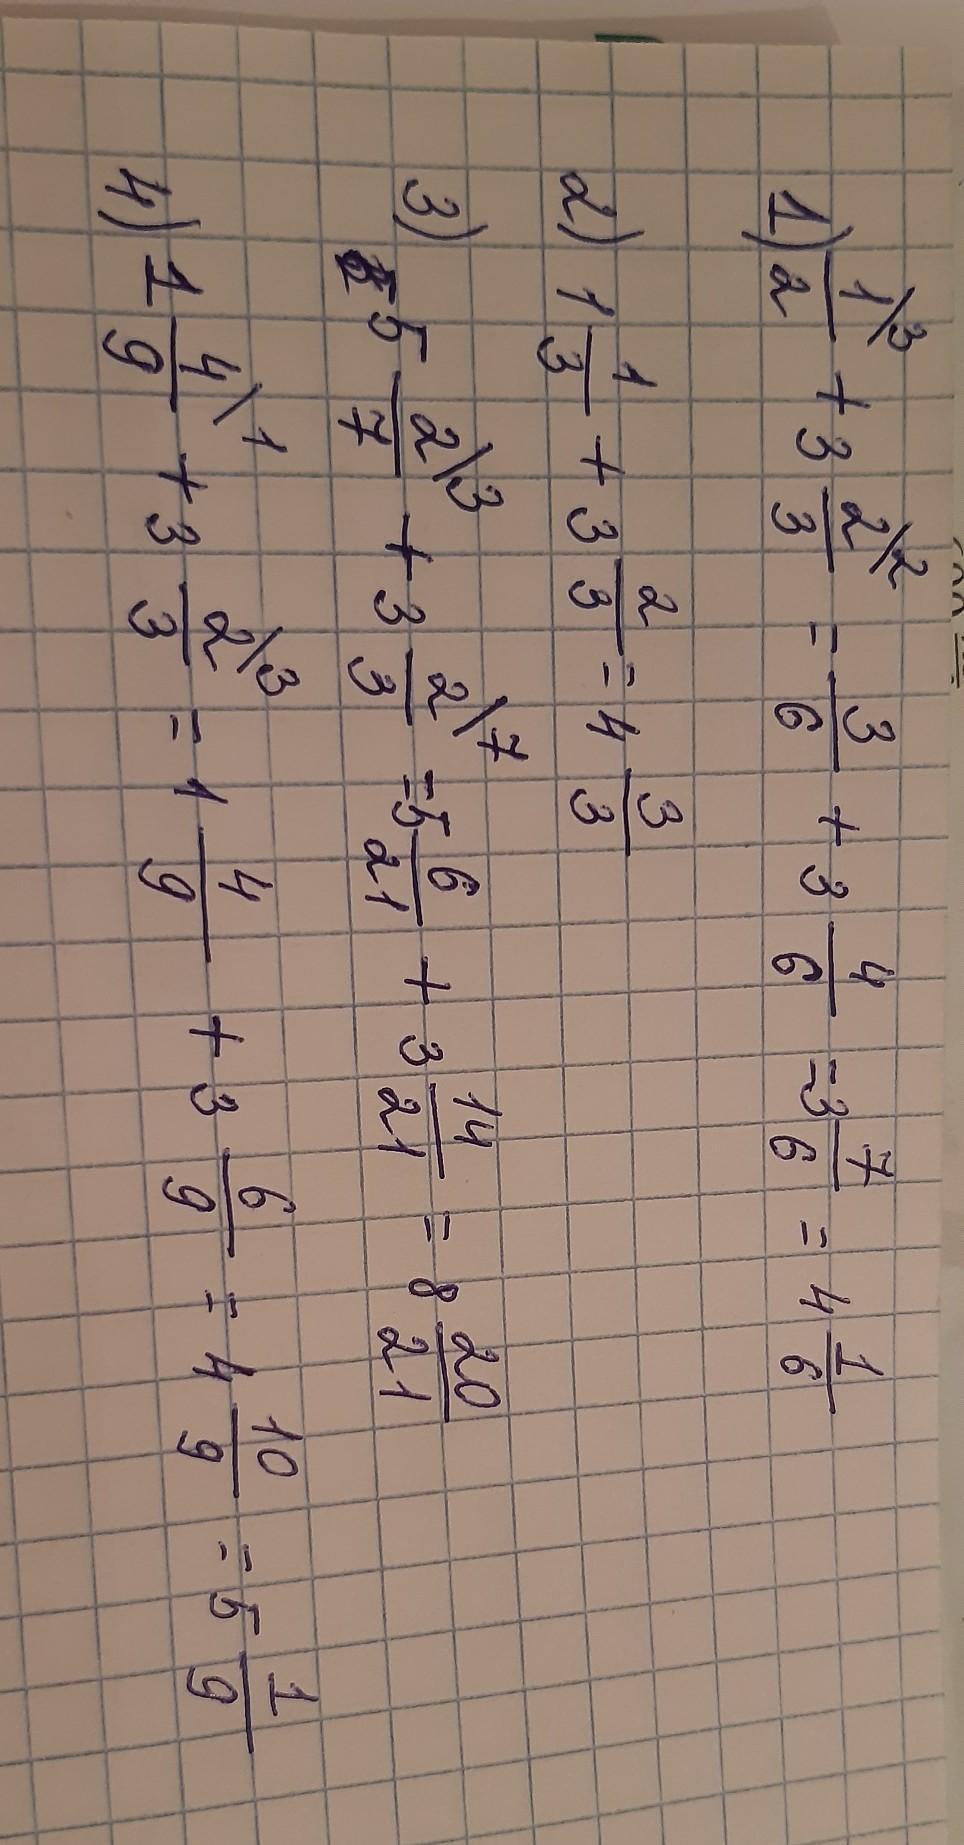 1) 1/2\3 + 3 2/3\2 = 3/6 + 3 4/6 = 3 7/6 = 4 1/6
2) 1 1/3 + 3 2/3 = 4 3/3
3) 5 2/7\3 + 3 2/3\7 = 5 6/21 + 3 14/21 = 8 20/21
4) 1 4/9\1 + 3 2/3\3 = 1 4/9 + 3 6/9 = 4 10/9 = 5 1/9